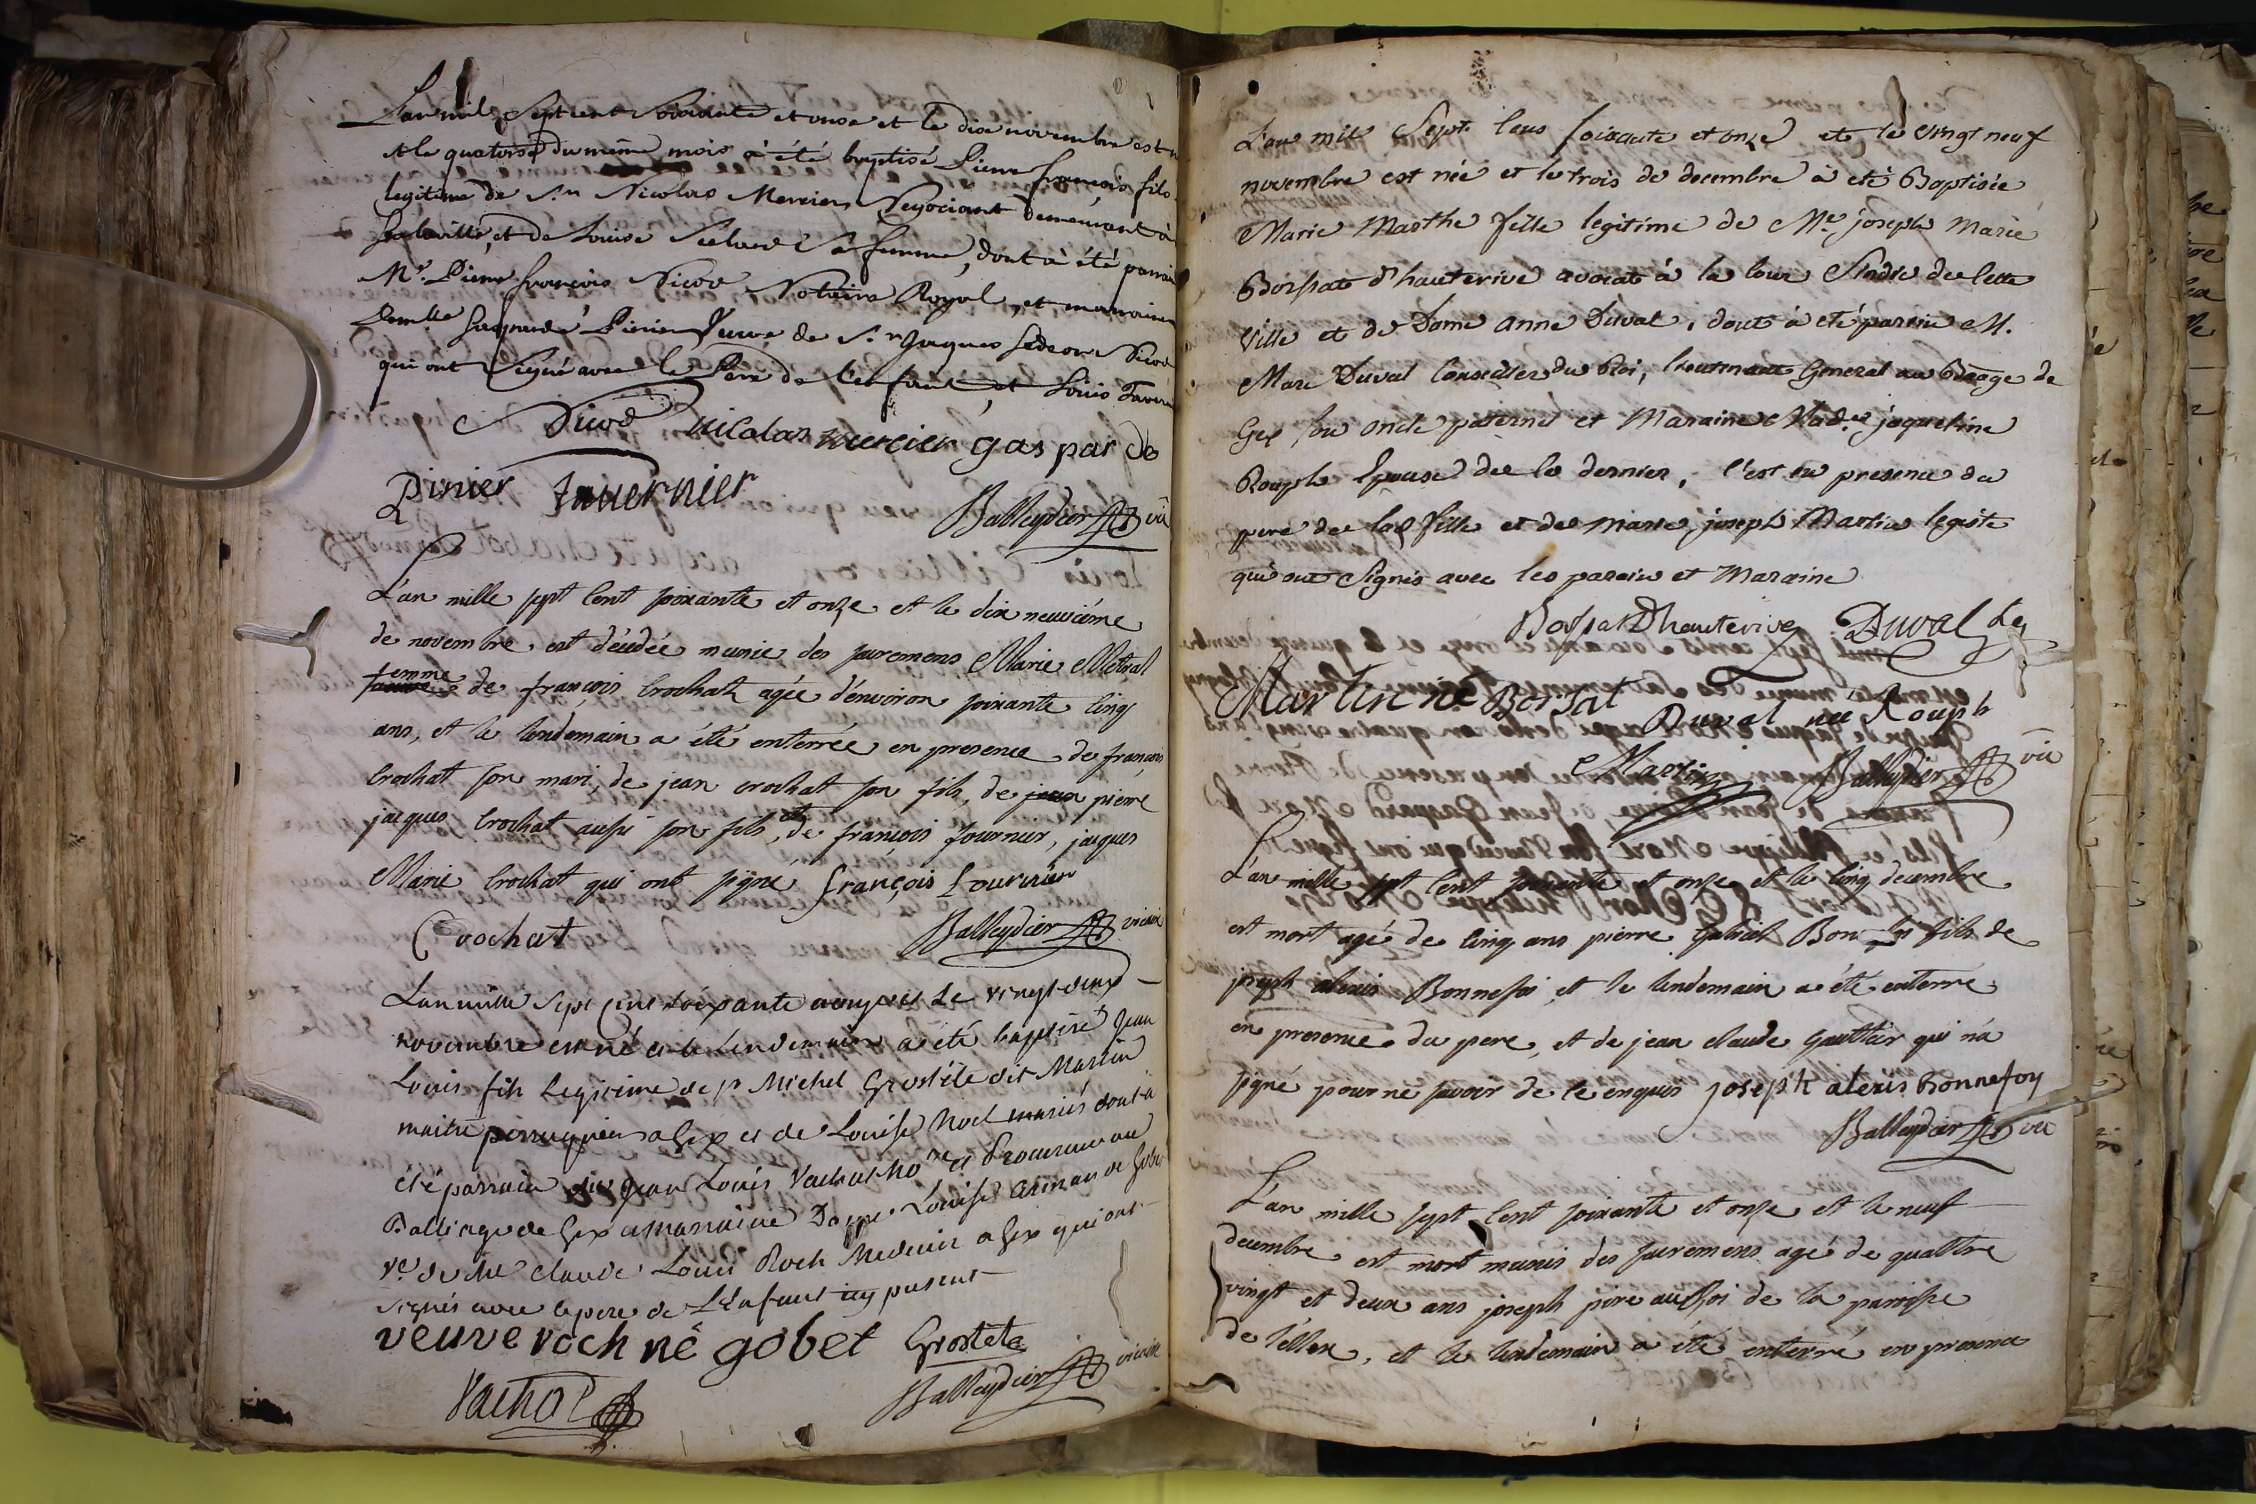 L'an mil sept cent soixante et onze et le dix novembre est n
et le quatorse du même mois a été baptisé Pierre françois fils
legitime de S.r Nicolas Mercier Negociant demeurant à
et de Louise sa femme, dont a été parrain
M.e Pierre françois Nicod Notaire Royal, et marraine
Demlle Gasparde Pinier Veuve de S.r Jaques Nicod
qui ont signé avec le Père de l'enfant, et Louis Taver
Nicod nicolas mercier gaspar de
Pinier Tavernier
Balleydier vic
L'an mille sept cent soixante et onze et le dix neuvième
de novembre est décédée munie des sacremens Marie Methal
femme de françois Crochat agée d'environ soixante cinq
ans, et le lendemain a été enterrée en presence de françois
Crochat son mari, de jean crochat son fils, de jean pierre
jacques Crochat aussi son fils, et de françois fournier, jacques
Marie Crochat qui ont signé françois fournier
Crochat Balleydier vicaire
L'an mille sept cent soixante onze et le vingt deux
novembre est né et le lendemain a été baptisé Jean
Louis fils legitime de sr Michel Grostête dit Martin
maitre perruquier a Gex et de Louise Noel mariés dont a
été parrain jean Louis Vachat No.re et Procureur au
Balliage de Gex et marraine Dame Louise
V.e de Me Claude Louis Roch Medecin a Gex qui ont
signés avec le pere de L'Enfant icy présent
veuve roch né gobet Grostete
Vachat Balleydier vicaire
L'an mil sept cens soixante et onze et le vingt neuf
novembre est née et le trois de decembre à eté Baptisée
Marie Marthe fille legitime de Me joseph Marie
Borssat d'hauterive avocat à la Cour Sindic de cette
Ville et de Dame Anne Duval, dont à eté parrin M.
Marc Duval Conseiller du Roi, lieutenant General au Baage de
Gex son oncle paternel et Maraine Made. jaqueline
Rouph Epouse de ce dernier, c'est en presence du
pere de lad fille et de Maitre joseph Martin legiste
qui ont signés avec les parain et Maraine
Borssat Dhauterive Duval
Martin né Borsat
Duval née Rouph
Martin Balleydier vic
L'an mille sept cent soixante et onze et le cinq decembre
est mort agé de cinq ans pierre gabriel Bon fils de
joseph alexis Bonnefoi et le lendemain a été enterré
en presence du pere, et de jean claude gauthier qui n'a
signé pour ne savoir de ce enquis joseph alexis bonnefoy
Balleydier vic
L'an mille sept cent soixante et onze et le neuf
decembre est mort munis des sacremens agé de quattre
vingt et deux ans joseph de la paroisse
de , et le lendemain a été enterré en presence